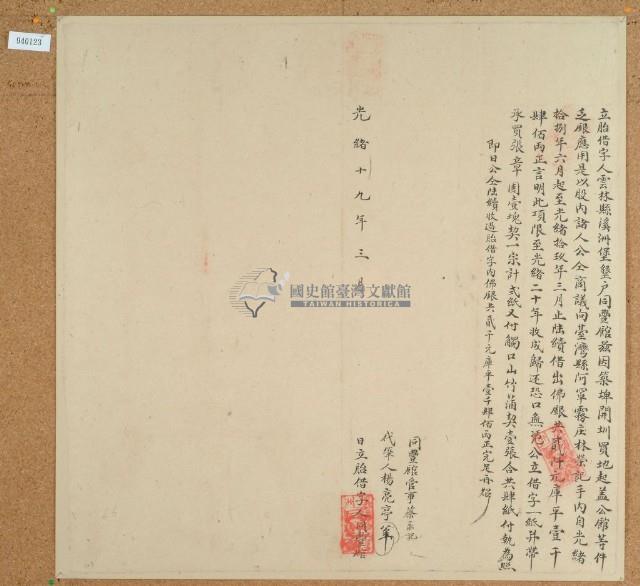 940123
立胎借字人雲林縣溪洲堡墾戶同豐館茲因築埤開圳買地起蓋公館等件
乏銀應用是以股內諸人公仝商議向臺灣縣阿罩霧庄林榮記手內自光緒
拾捌年六月起至光緒拾玖年三月止陸續借出佛銀共貳仟元庫平壹千
肆佰兩正言明此項限至光緒二十年收成歸还恐口無憑公立借字一紙并帶
承買張章園壹塊契一宗計弍紙又付觸口山竹蒲契壹張合共肆紙付執為照
即日公仝陸續收過胎借字內佛銀共貳千元庫平壹千肆佰兩正完足再炤
同豐館管事蔡
代筆人楊亮亭
光緒十九年三月 日立胎借字人同豐館
國史館臺灣文獻館
TAIWAN HISTORICA